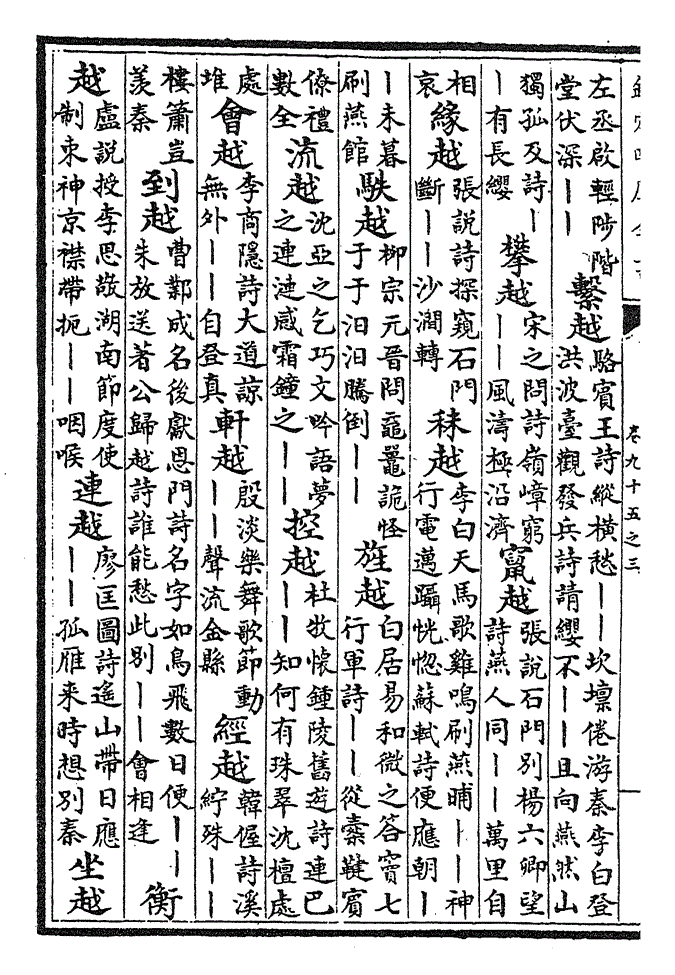 卷九十五之三
左丞啟輕陟階
堂伏深——
繫越
駱賓王詩縱橫愁——坎壈倦游秦李白登
洪波臺觀發兵詩請纓不——且向燕然山
獨孤及詩—
—有長纓
攀越
宋之問詩嶺嶂窮
——風濤極沿濟
竄越
張說石門別楊六卿望
詩燕人同——萬里自
相
哀
緣越
張說詩探窺石門
斷——沙澗轉
秣越
李白天馬歌雞鳴刷燕晡——神
行電邁躡恍惚蘇軾詩便應朝—
—未暮
刷燕館
駃越
柳宗元晉問黿鼉詭怪
于于汩汩騰倒——
旌越
白居易和微之答竇七
行軍詩——從橐鞬賓
僚禮
數全
流越
沈亞之乞巧文吟語夢
之連漣感霜鐘之——
控越
杜牧懷鍾陵舊遊詩連巴
——知何有珠翠沈檀處
處
堆
會越
李商隱詩大道諒
無外——自登真
軒越
殷淡樂舞歌節動
——聲流金縣
經越
韓偓詩溪
紵珠——
樓簫豈
羨秦
到越
曹鄴成名後獻恩門詩名字如鳥飛數日便——
朱放送著公歸越詩誰能愁此別——會相逢
衡
越
盧說授李思敬湖南節度使
制束神京襟帶扼——咽喉
連越
廖匡圖詩遙山帶日應
——孤雁来時想別秦
坐越